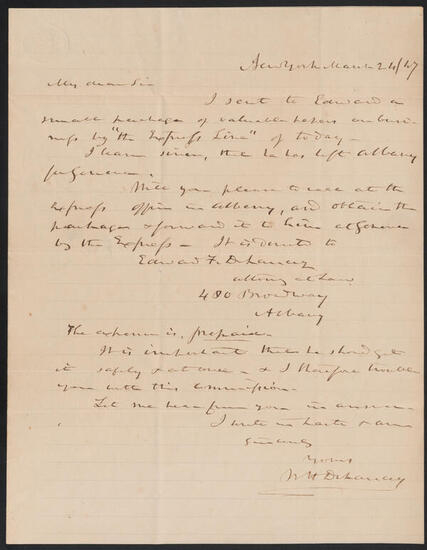 New York March 24/47
My dear Sir
I sent to Edward a
small package of valuable papers on busi-
ness by "the Express Line" of today—
I learn since, that he has left Albany
for Geneva.
Will you please to call at the
Express Office in Albany, and obtain the
package & forward it to him at Geneva
by the Express— It is directed to
Edward F. DeLancey
attorney at Law
480 Broadway
Albany
The expense is, prepaid.
It is important that he should get
it safely & at once— & I therefore trouble
you with this commission.
Let me hear from you in answer.
I write in haste & am
sincerely
Yours
W H DeLancey